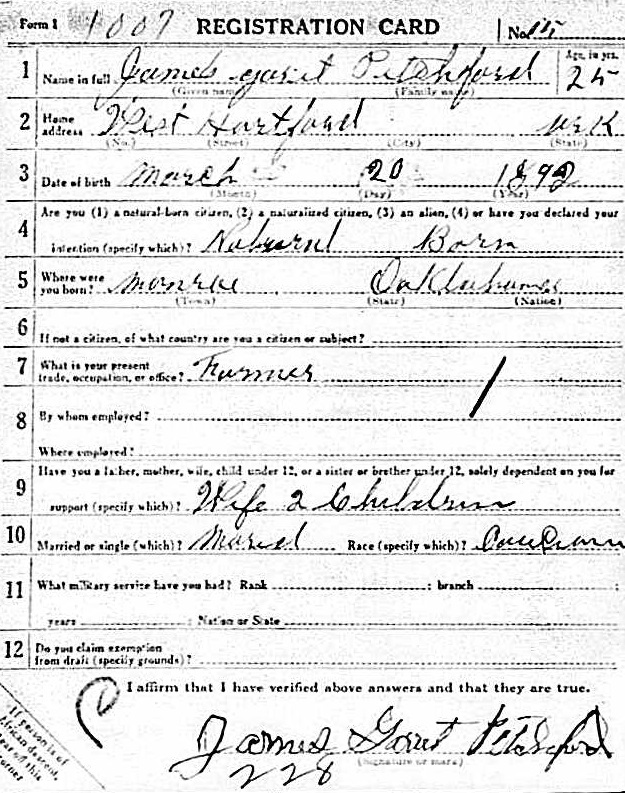 Form 1 1007 REGISTRATION CARD No. 15
1 Name in full James Garet Pitchford Age, in yrs. 25
(Given name) (Family name)
2 Home address West Hartford Ark
(No.) (Street) (City) (State)
3 Date of birth March 20 1892
(Month) (Day) (Year)
4 Are you (1) a natural-born citizen, (2) a naturalized citizen, (3) an alien, (4) or have you declared your
intention (specify which)? Natural Born
5 Where were you born? Monroe Oaklahoma
(Town) (State) (Nation)
6 If not a citizen, of what country are you a citizen or subject?
7 What is your present trade, occupation, or office? Farmer
8 By whom employed?
Where employed?
9 Have you a father, mother, wife, child under 12, or a sister or brother under 12, solely dependent on you for
support (specify which)? Wife 2 Children
10 Married or single (which)? Maried Race (specify which)?
11 What military service have you had? Rank ; branch ;
years ; Nation or State
12 Do you claim exemption from draft (specify grounds)?
I affirm that I have verified above answers and that they are true.
James Garet Pitchford
(Signature or mark)
228
If person is of
African descent,
tear off this
corner